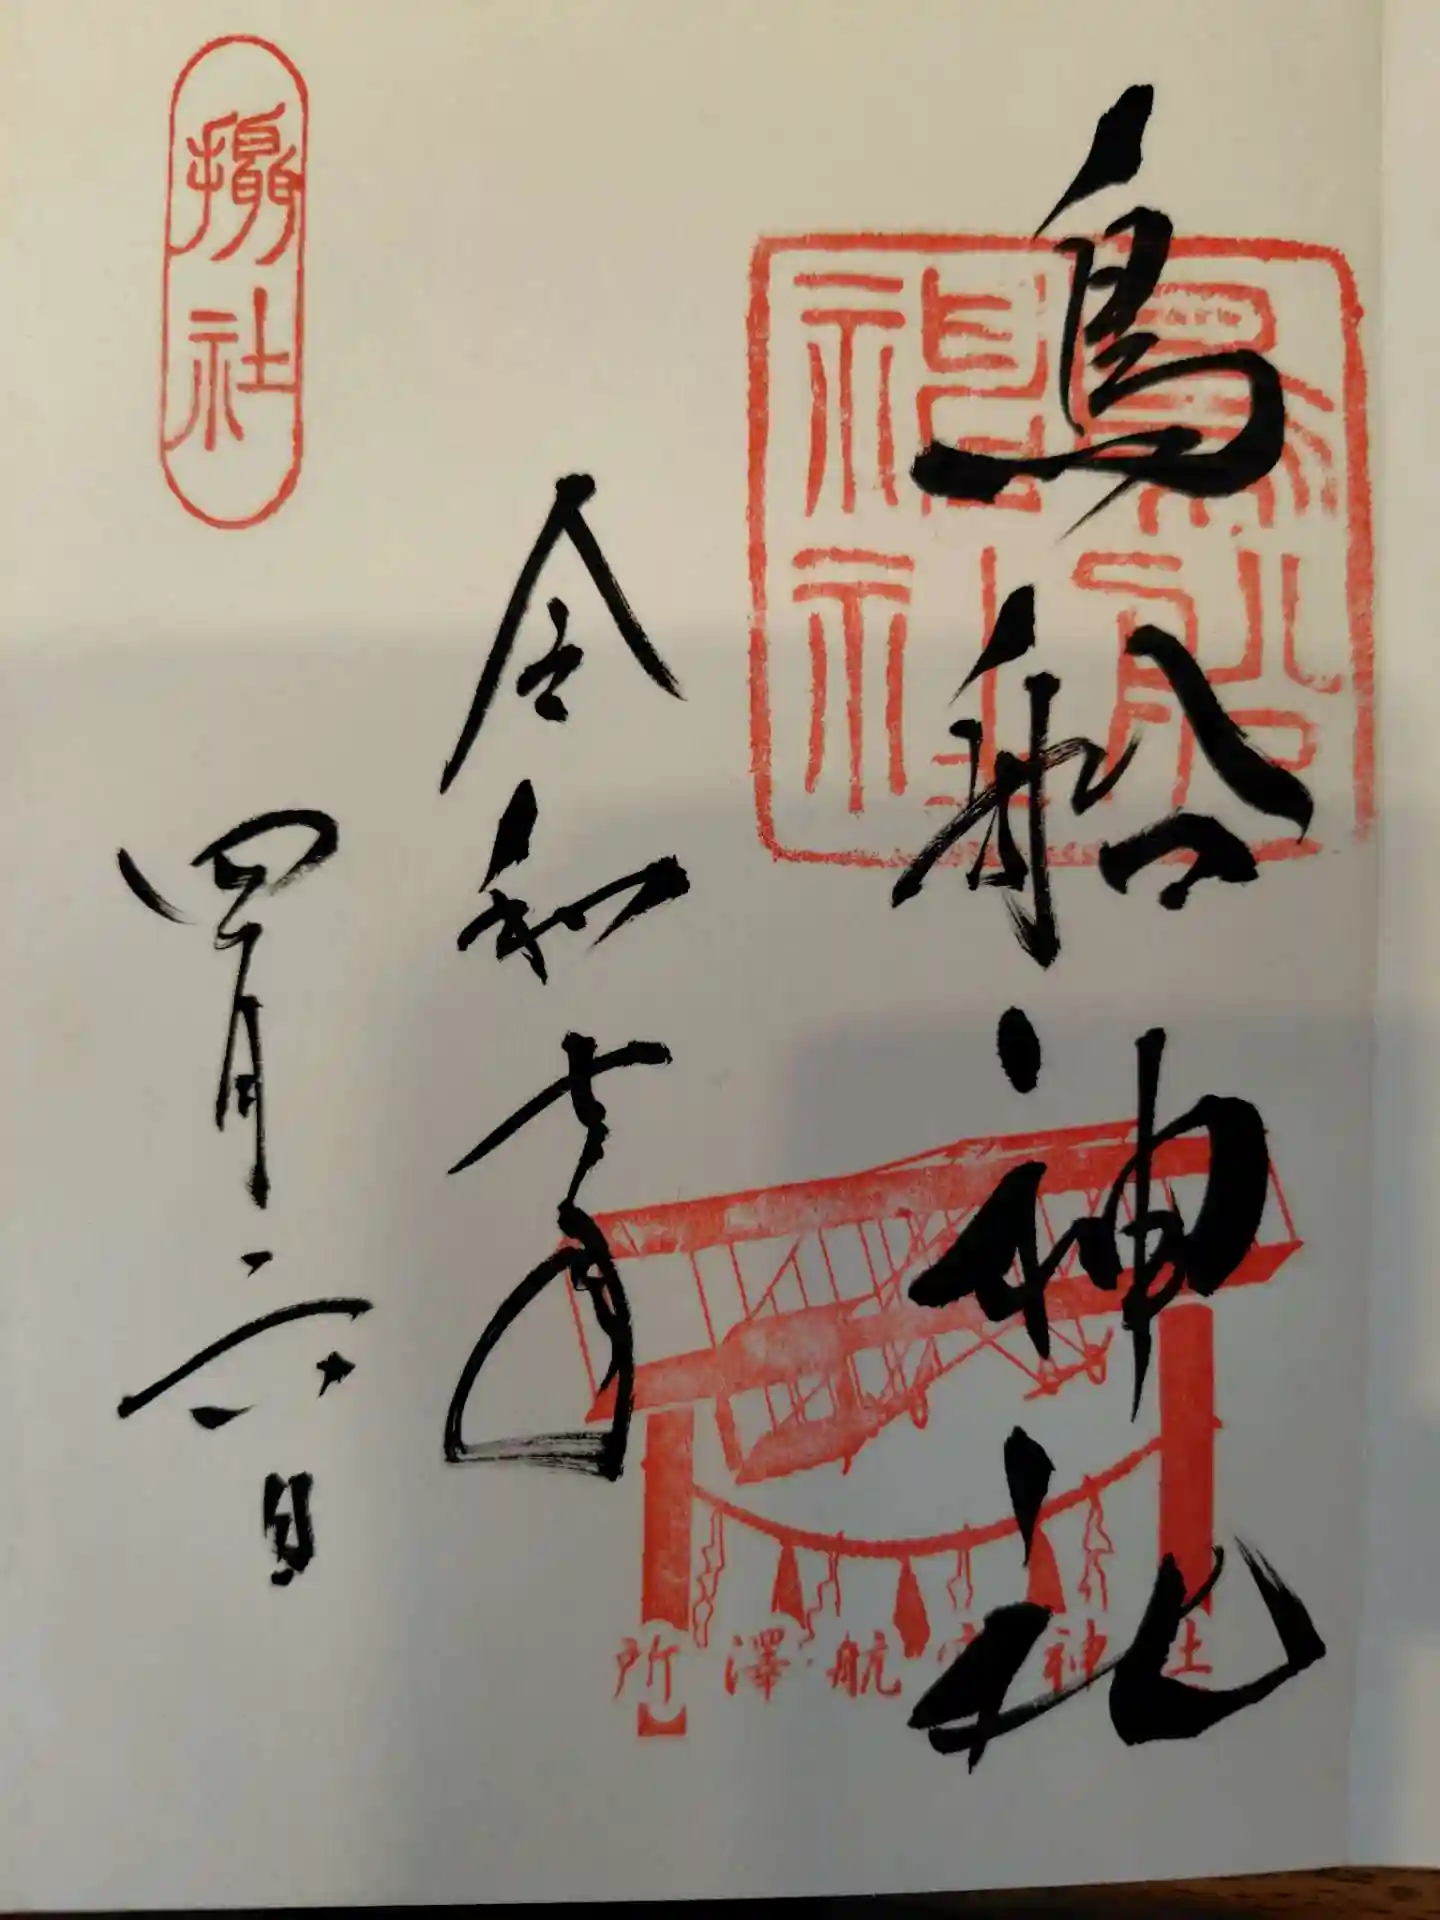 鳥船神社
鳥船神社
所澤航空神社
令和七年
四月六日
社